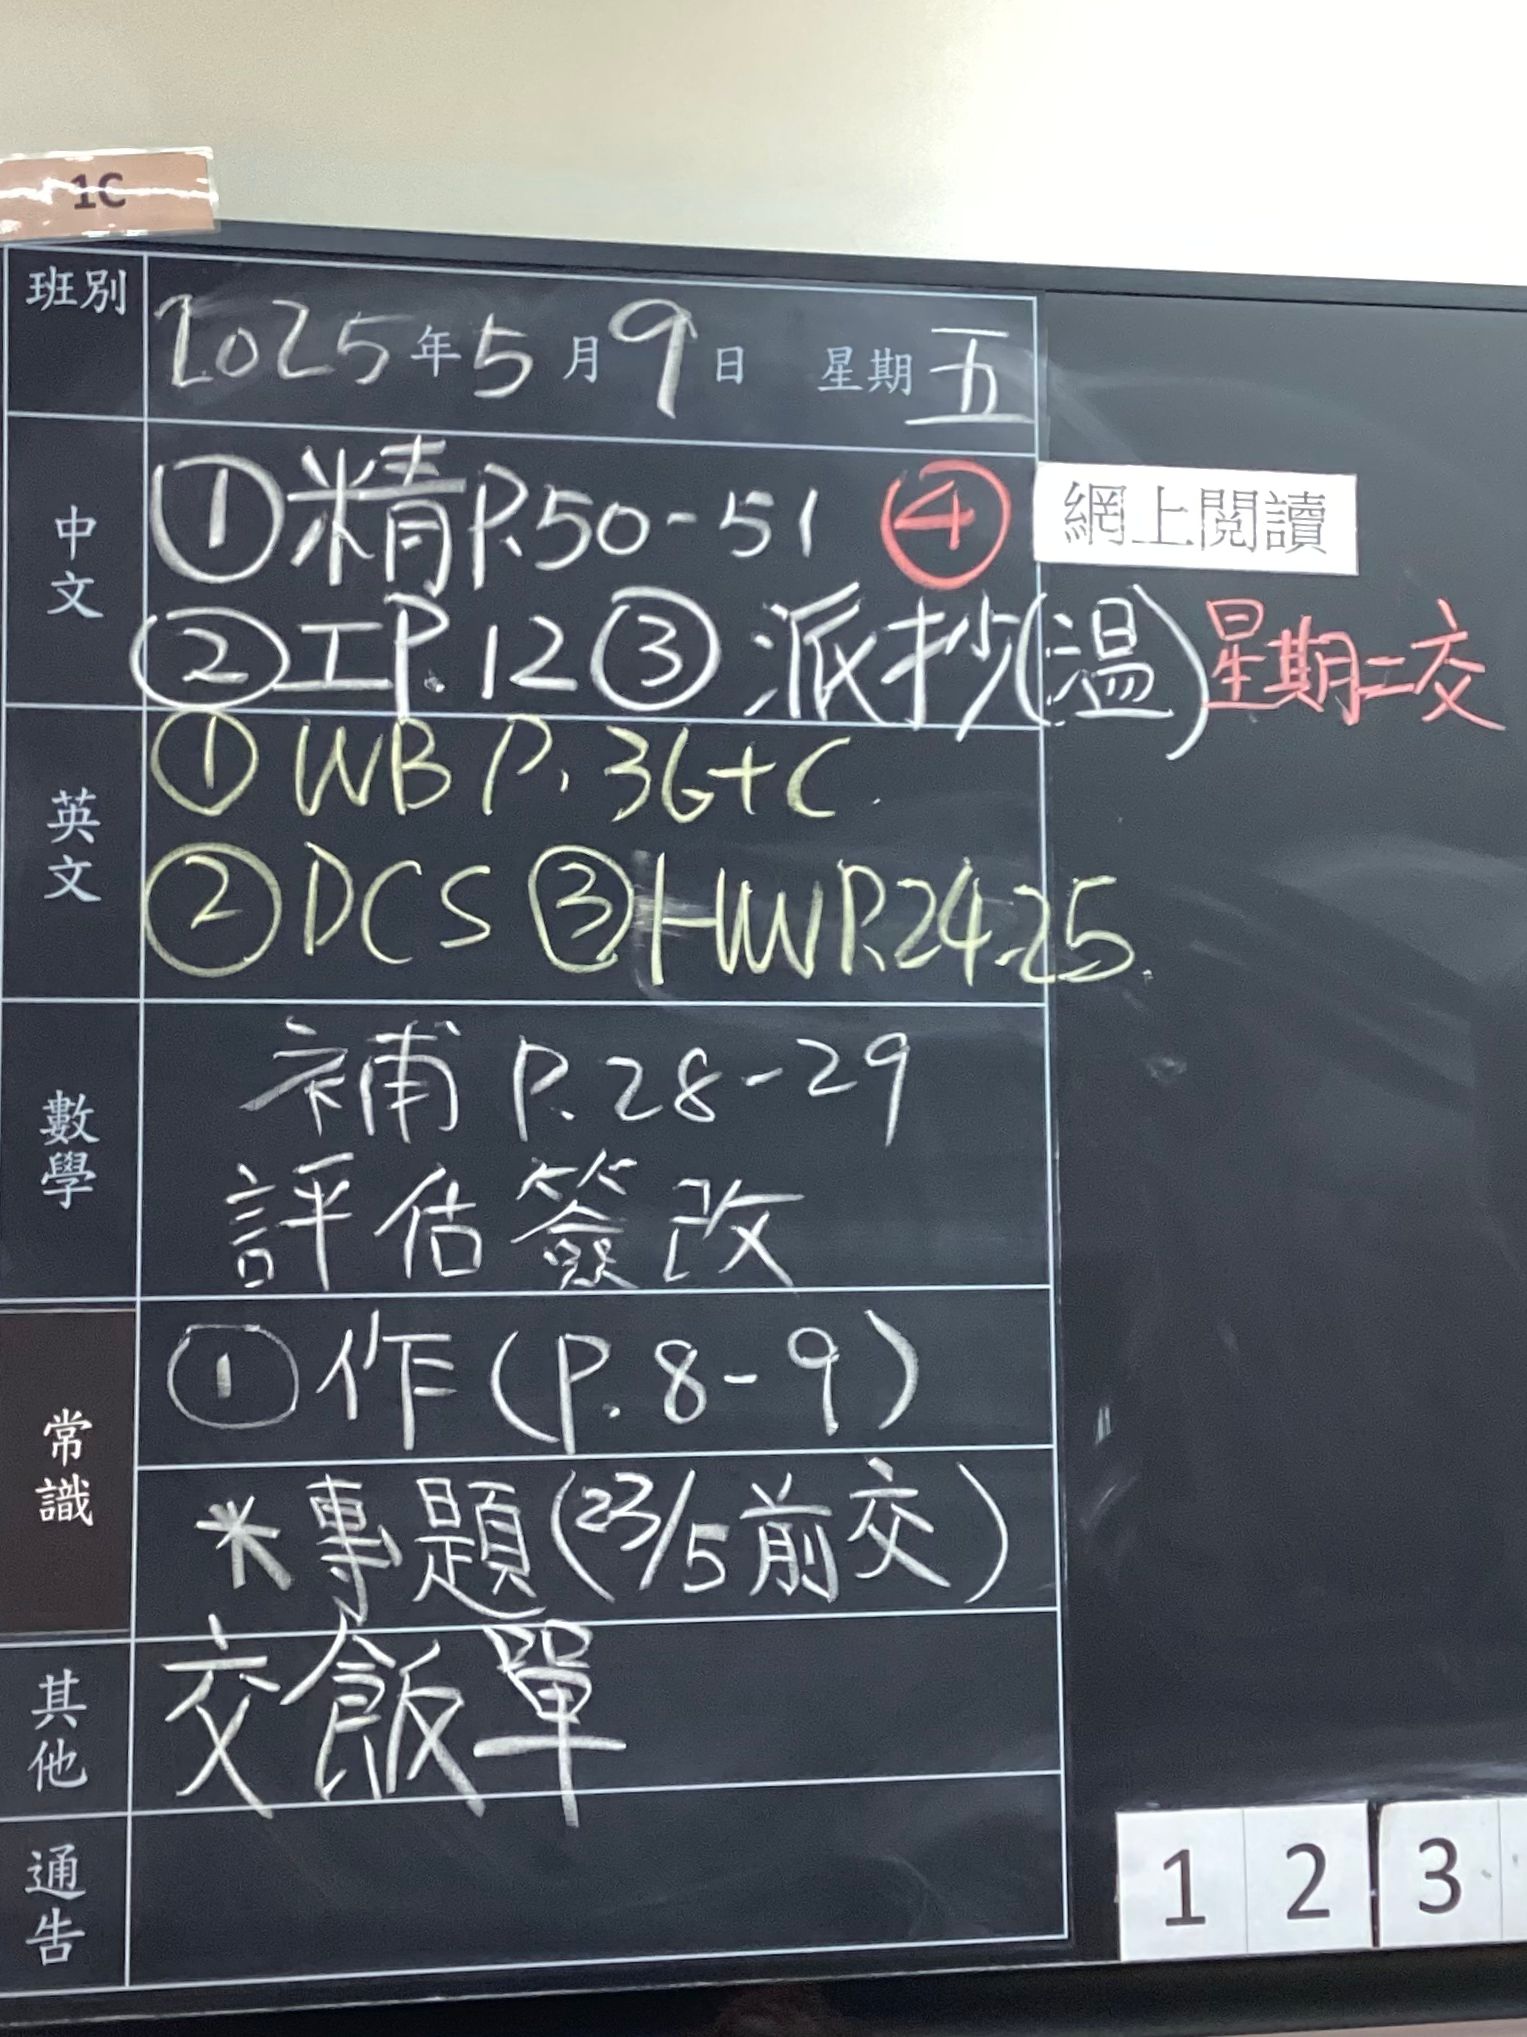 1C
班別
2025年5月9日 星期五
中文
①精P.50-51 ④ 網上閱讀
②工P.12 ③派抄(溫) 星期二交
英文
①WB P.36+C
②DCS ③HW P.24-25
數學
補 P.28-29
評估簽改
常識
①作(P.8-9)
*專題(23/5前交)
其他
交飯單
通告
1 2 3